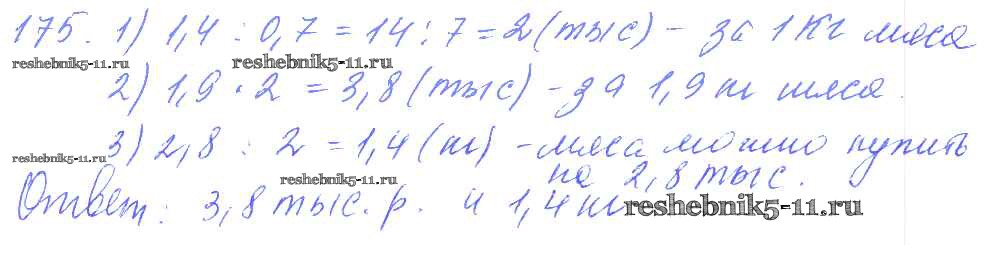 175. 1) 1,4 : 0,7 = 14 : 7 = 2 (тыс) - за 1 кг мяса
reshebnik5-11.ru reshebnik5-11.ru
2) 1,9 · 2 = 3,8 (тыс) - за 1,9 кг мяса.
3) 2,8 : 2 = 1,4 (кг) - мяса можно купить
reshebnik5-11.ru
на 2,8 тыс.
reshebnik5-11.ru
Ответ: 3,8 тыс. р. и 1,4 кг
reshebnik5-11.ru